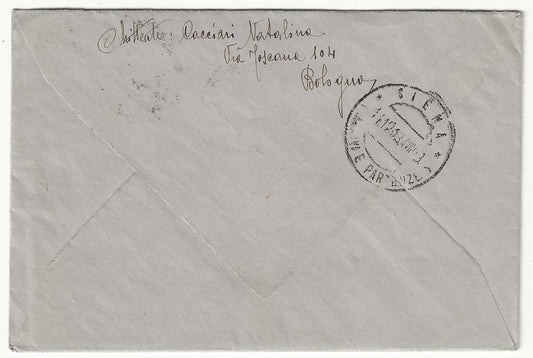 Mittente: Cacciari Natalina
Via Toscana 104
Bologna
* SIENA *
ARRIVI E PARTENZE